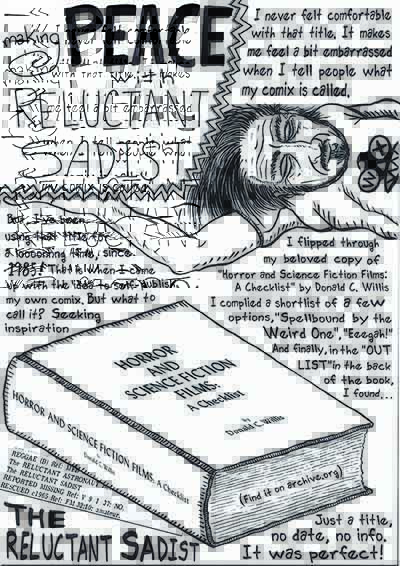 making
PEACE
RELUCTANT
SADIST
I never felt comfortable
with that title. It makes
me feel a bit embarrassed
when I tell people what
my comix is called.
But, I've been
using that title for
a loooooong time, since
1985! That is when I came
up with the idea to self-publish
my own comix. But what to
call it? Seeking
inspiration
I flipped through
my beloved copy of
"Horror and Science Fiction Films:
A Checklist" by Donald C. Willis
I complied a shortlist of a few
options, "Spellbound by the
Weird One", "Eeegah!"
And finally, in the "OUT
LIST" in the back
of the book,
I found...
HORROR
AND
SCIENCE FICTION
FILMS:
A Checklist
by
Donald C. Willis
HORROR AND SCIENCE FICTION FILMS: A Checklist
Donald C. Willis
(Find it on archive.org)
The RELUCTANT ASTRONAUT
The RELUCTANT SADIST
REPORTED MISSING
THE
RELUCTANT SADIST
Just a title,
no date, no info.
It was perfect!